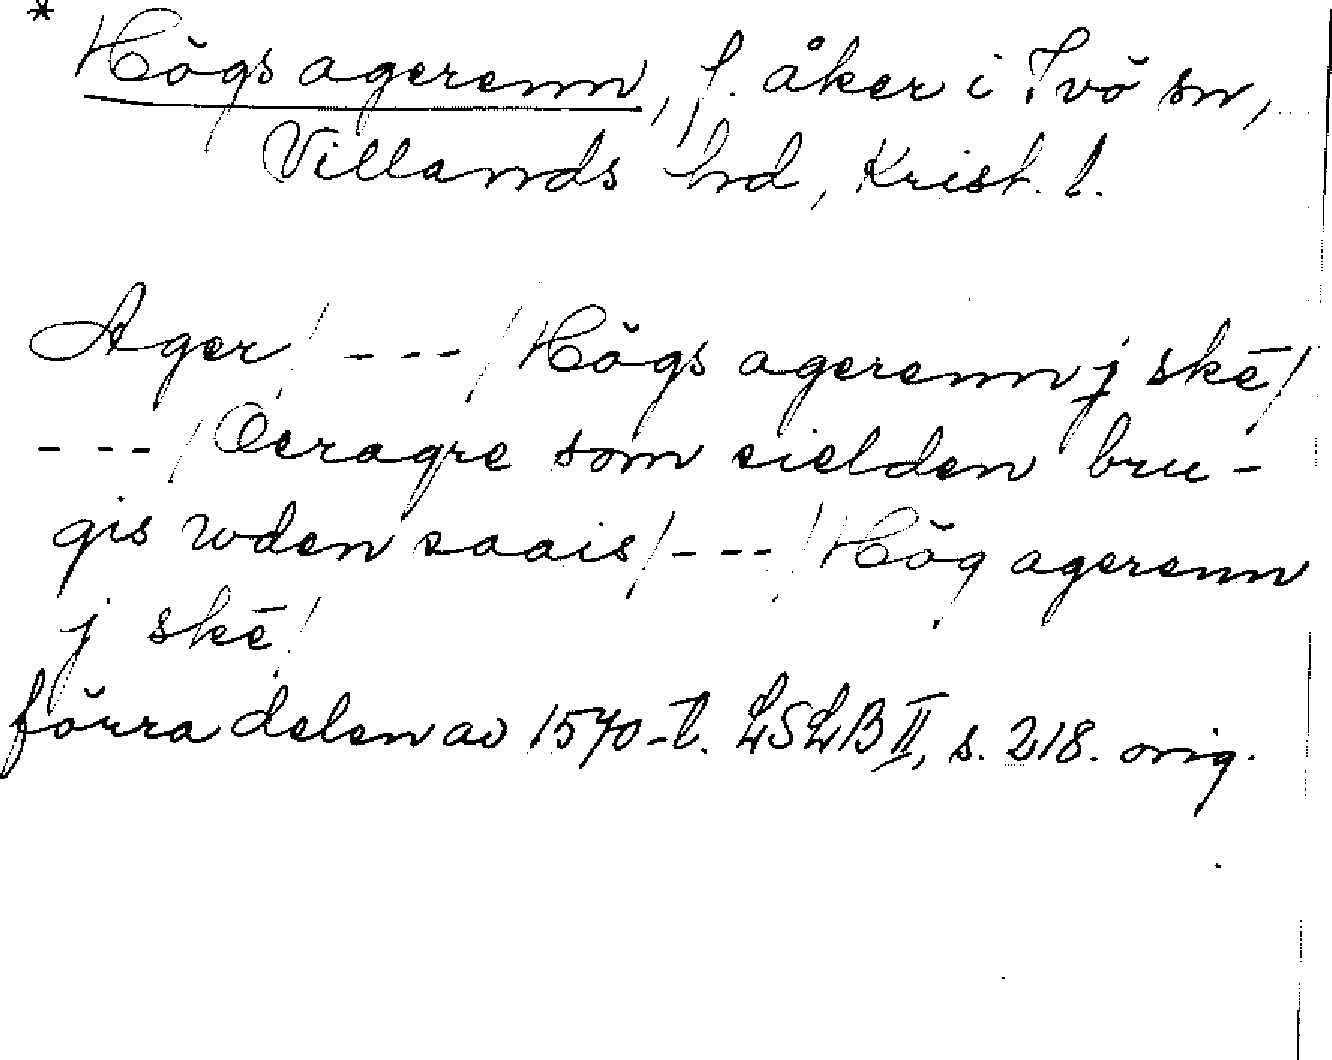 * Högs agerenn, f. åker i Ivö sn,
Villands hd, Krist. l.
Ager / --- / Högs agerenn j skē /
--- / Oeragre som sielden bru-
gis wden saais / --- / Hög agerenn
j skē /
förra delen av 1570-t. LSLB II, s. 218. orig.